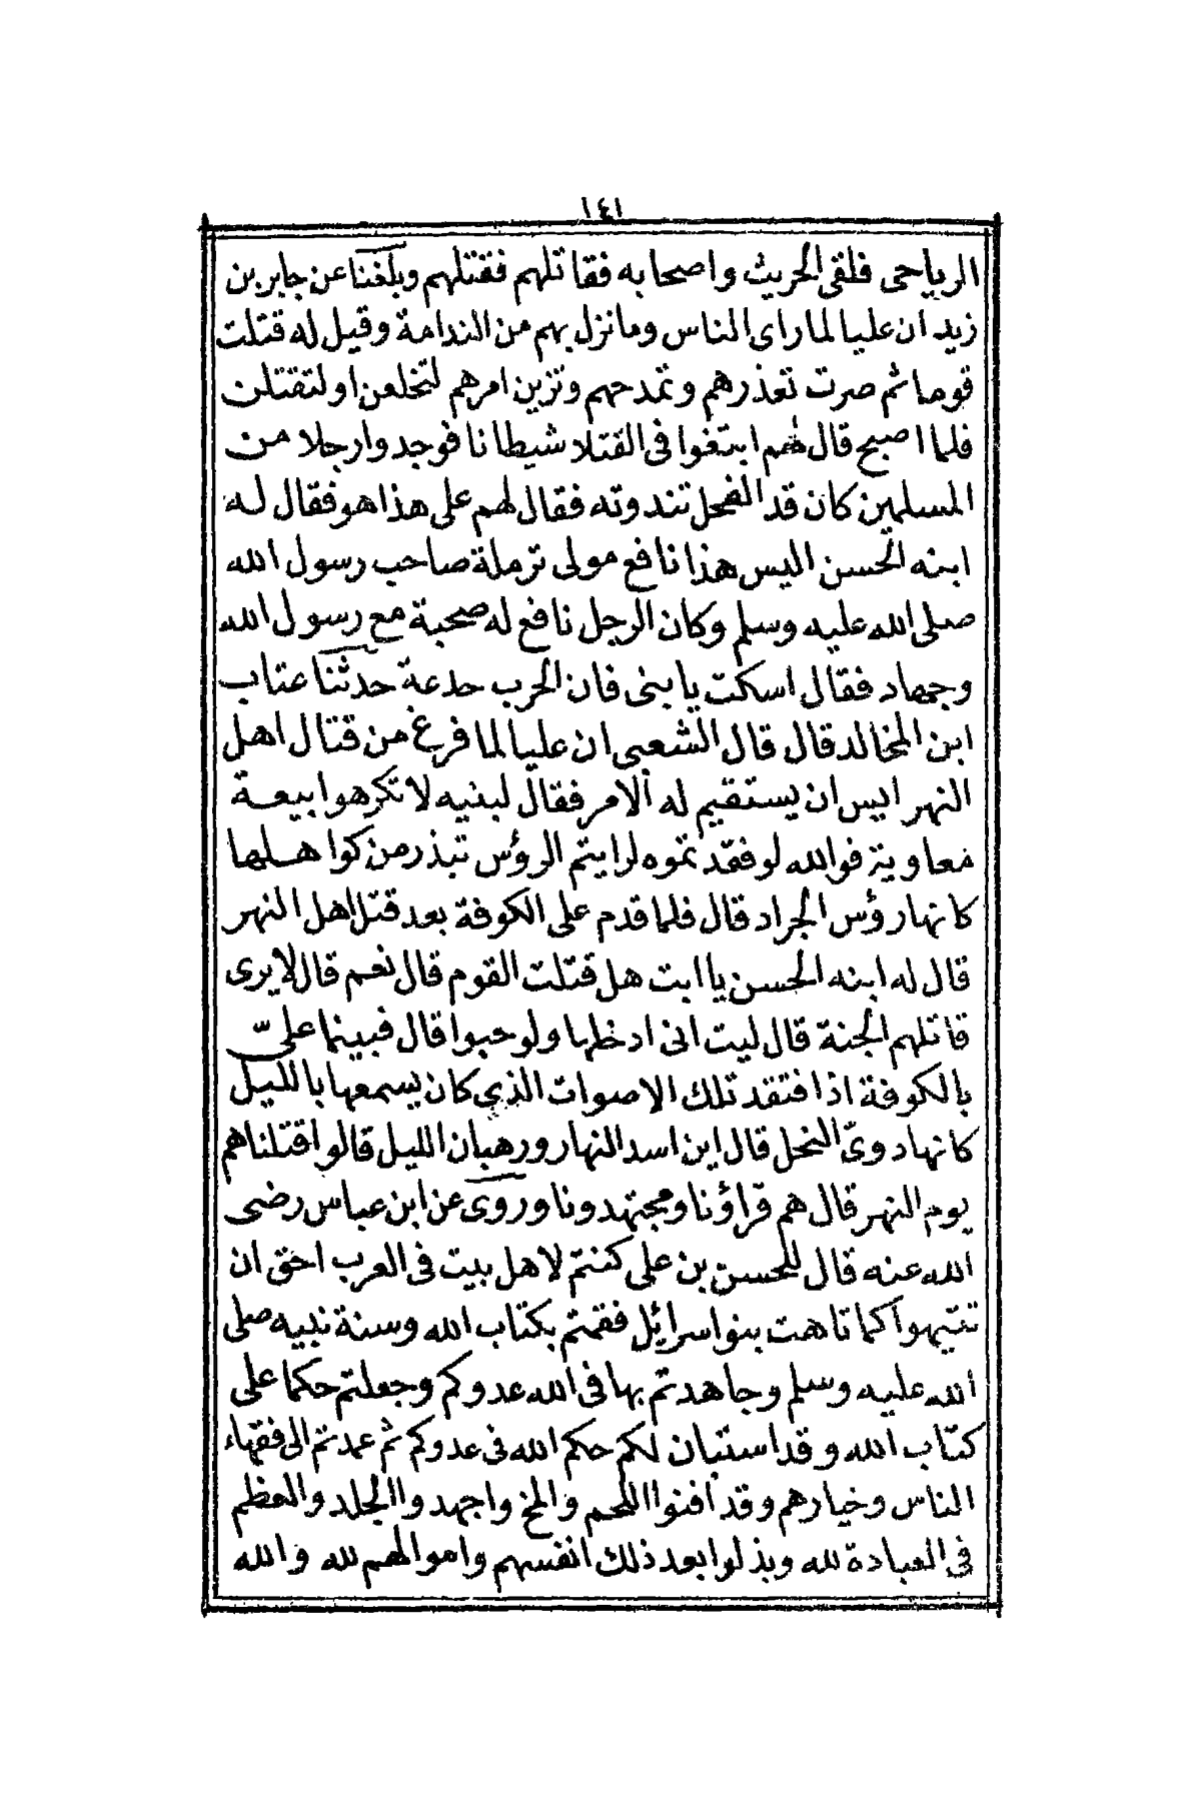 ١٤١
الرياحى فلقى الحريث واصحابه فقاتلهم فقتلهم وبلغنا عن جابر بن
زيد ان عليا لما راى الناس وما نزل بهم من الندامة وقيل له قتلت
قوما ثم صرت تعذرهم وتمدحهم وتزين امرهم لتخلعن او لتقتلن
فلما اصبح قال لهم ابتغوا فى القتلا شيطانا فوجدوا رجلا من
المسلمين كان قد الفحل تندوته فقال لهم على هذا هو فقال له
ابنه الحسن اليس هذا نافع مولى ترملة صاحب رسول الله
صلى الله عليه وسلم وكان الرجل نافع له صحبة مع رسول الله
وجهاد فقال اسكت يا بنى فان الحرب خدعة حدثنا عتاب
ابن المخالد قال قال الشعبى ان عليا لما فرغ من قتال اهل
النهر ايس ان يستقيم له الامر فقال لبنيه لا تكرهوا بيعة
معاوية فوالله لو فقدتموه لرايتم الرؤس تبذر من كواهلها
كانها رؤس الجراد قال فلما قدم على الكوفة بعد قتل اهل النهر
قال له ابنه الحسن يا ابت هل قتلت القوم قال نعم قال لا يرى
قاتلهم الجنة قال ليت انى ادخلها ولو حبوا قال فبينما علىّ
بالكوفة اذا فتقد تلك الاصوات الذى كان يسمعها بالليل
كانها دوىّ النحل قال اين اسد النهار ورهبان الليل قالوا قتلناهم
يوم النهر قال هم قراؤنا ومجتهدونا وروى عن ابن عباس رضى
الله عنه قال للحسن بن على كنتم لاهل بيت فى العرب احق ان
تتيهوا كما تاهت بنو اسرائيل فقمتم بكتاب الله وسنة نبيه صلى
الله عليه وسلم وجاهدتم بها فى الله عدوكم وجعلتم حكما على
كتاب الله وقد استبان لكم حكم الله فى عدوكم ثم عمدتم الى فقهاء
الناس وخيارهم وقد افنوا اللحم والمخ واجهدوا الجلد والعظم
فى العبادة لله وبذلوا بعد ذلك انفسهم واموالهم لله والله